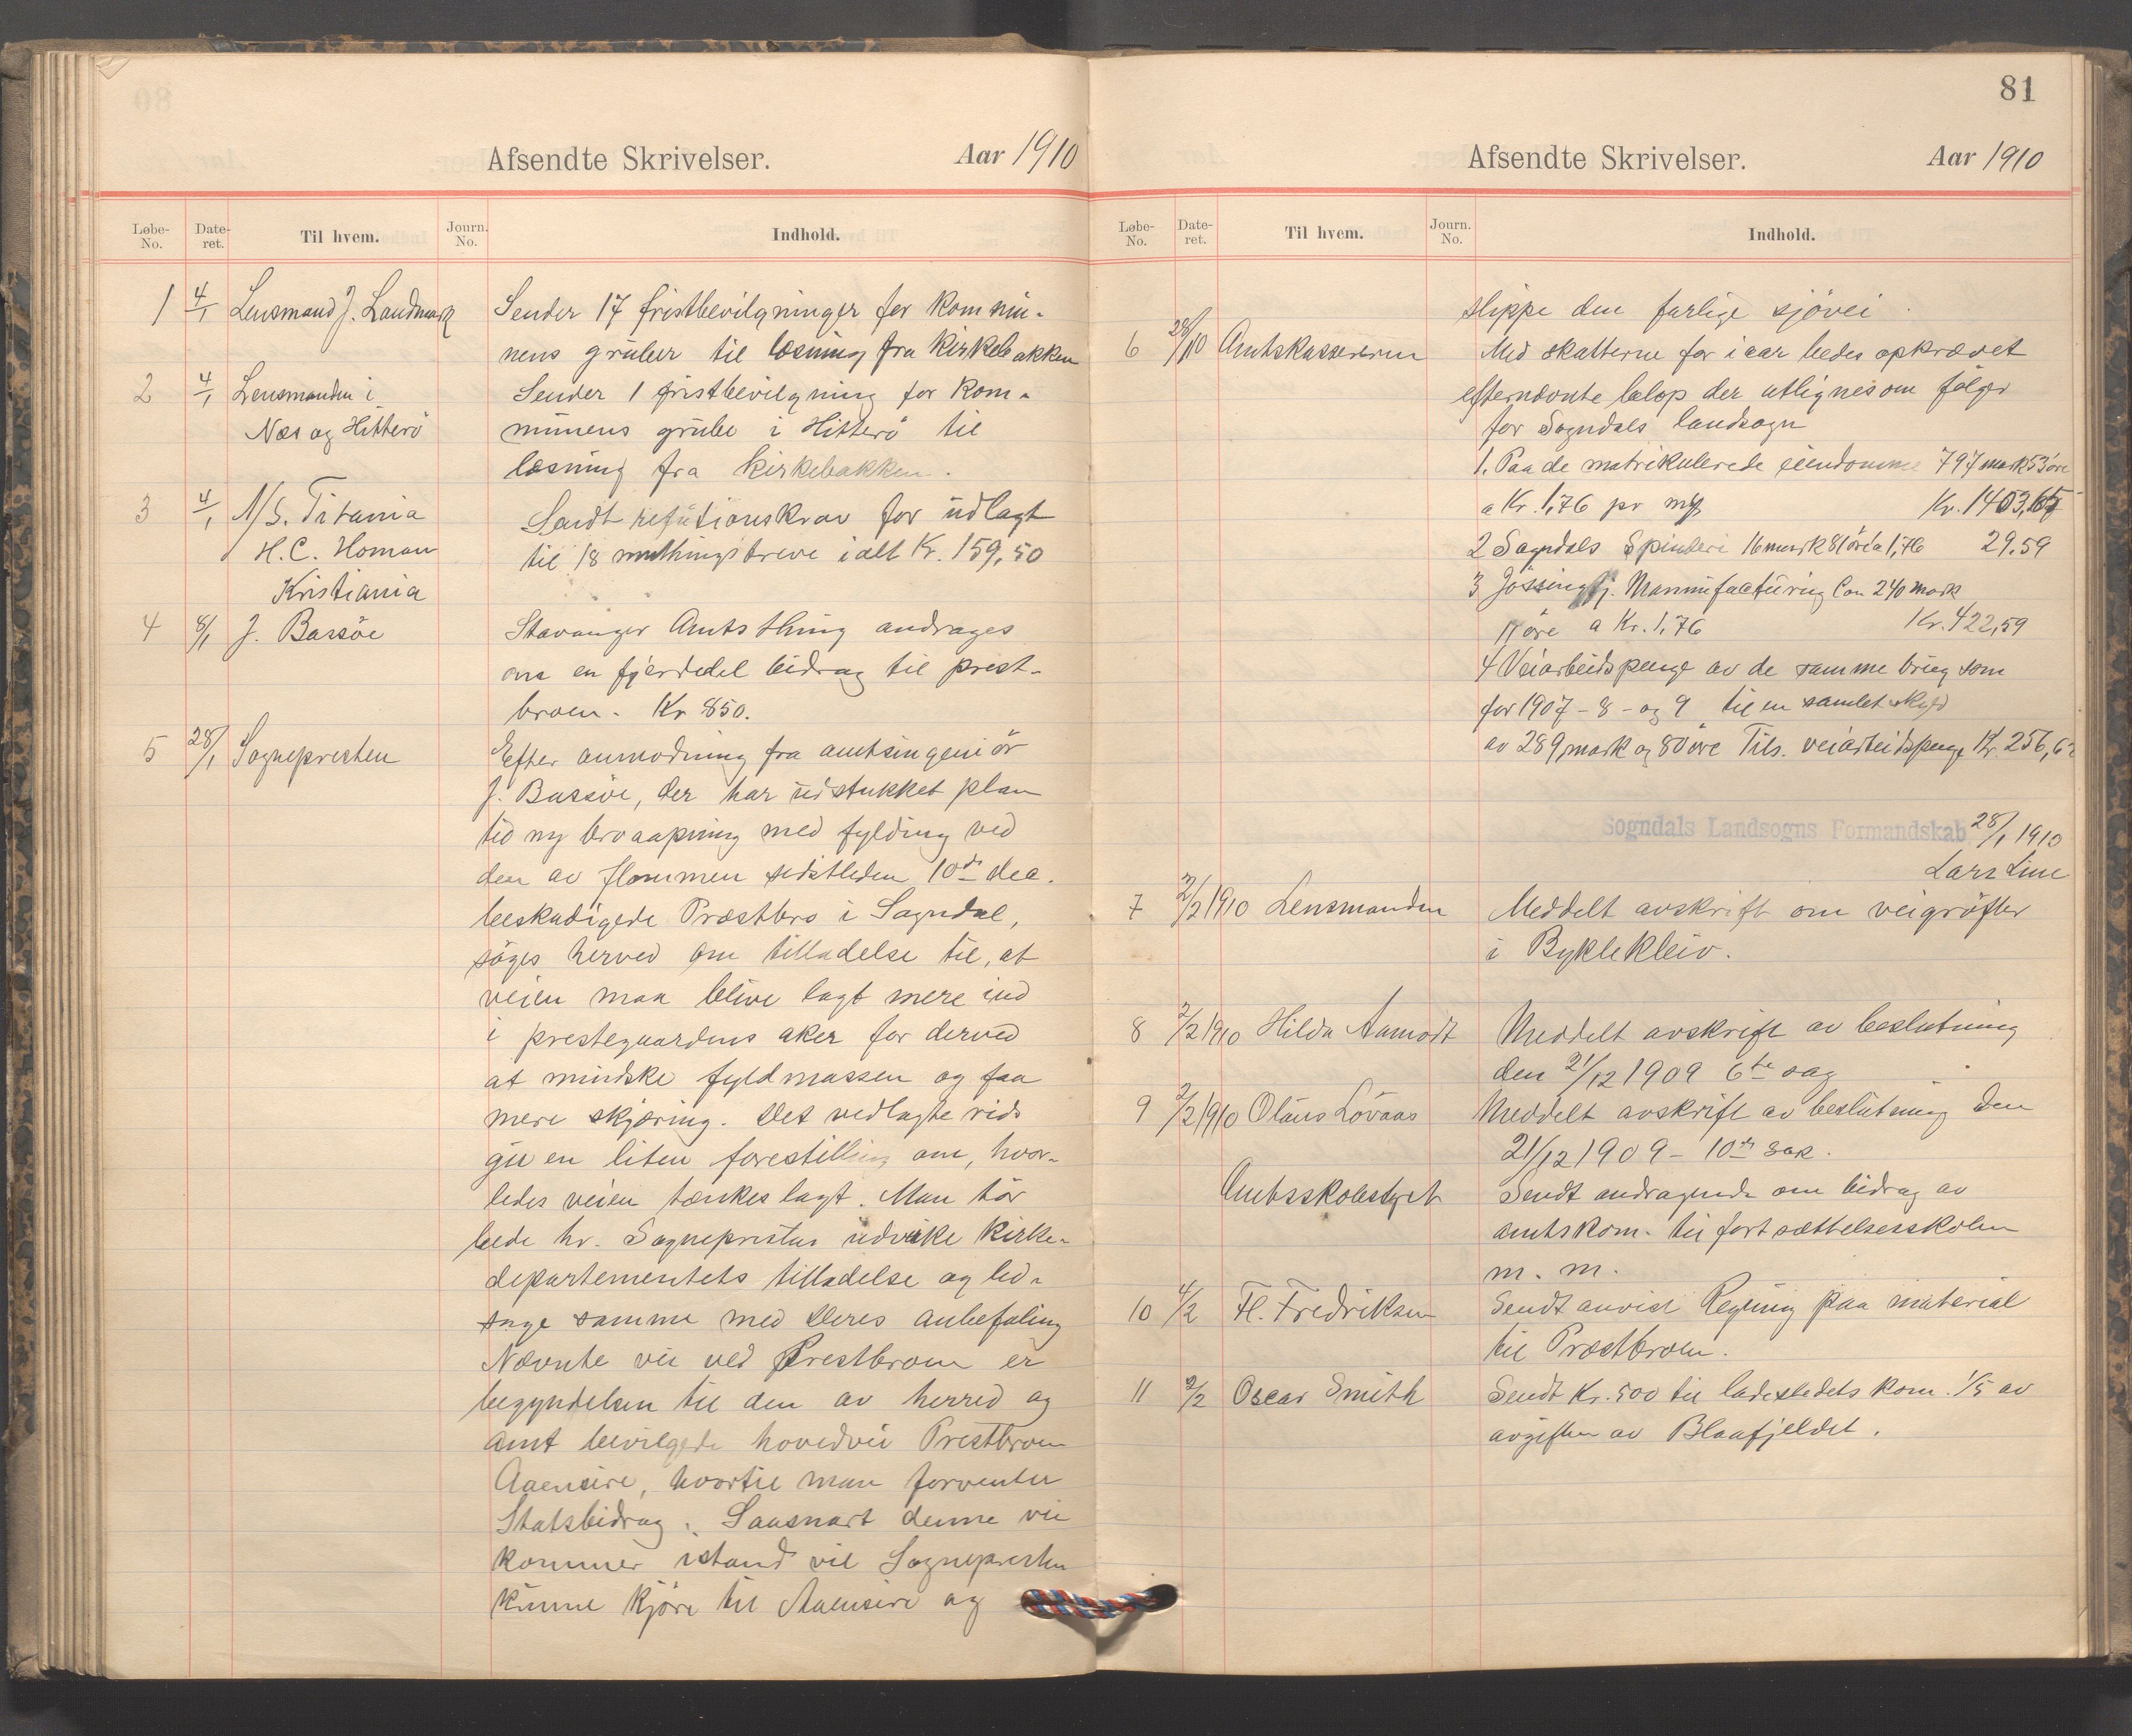 Afsendte Skrivelser. Aar 1910
Løbe-No. Date-ret. Til hvem. Journ. No. Indhold.
1 4/1 Lensmand J. Landmark Sender 17 fristbevilgninger for kommu-
nens gruber til læsning fra Kirkebakken
2 4/1 Lensmanden i Sender 1 fristbevilgning for kom-
Næs og Hitterö munens grube i Hitterö til
læsning fra kirkebakken.
3 4/1 A/S. Titania Sendt refutionskrav for udlagt
H. C. Homan til 18 muthingsbreve ialt Kr. 159,50
Kristiania
4 8/1 J. Bassöe Stavanger Amtsthing andrages
om en fjerdedel bidrag til prest-
broen. Kr 850.
5 28/1 Sognepresten Efter anmodning fra amtsingeniör
J. Bassöe, der har udstukket plan
til ny broaapning med fylding ved
den av flommen sidstleden 10de dec.
beskadigede Præstbro i Sogndal,
söges herved om tilladelse til, at
veien maa blive lagt mere ind
i prestegaardens aker for derved
at mindske fyldmassen og faa
mere skjæring. Det vedlagte rids
gir en liten forestilling om, hvor-
ledes veien tænkes lagt. Man tör
bede hr. Sognepresten udvirke Kirke-
departementets tilladelse og led-
sage samme med Deres anbefaling
Nævnte vei ved Prestbroen er
begyndelsen til den av herred og
amt bevilgede hovedvei Prestbroen
Aaensire, hvortil man forventer
Statsbidrag. Saasnart denne vei
kommer istand vil Sognepresten
kunne kjöre til Aaensire og
81
Afsendte Skrivelser. Aar 1910
Løbe-No. Date-ret. Til hvem. Journ. No. Indhold.
slippe den farlige sjövei.
6 28/1 10 Amtskassereren Med skatterne for iaar bedes opkrævet
efternævnte beløp der utlignes som fölger
for Sogndals landsogn
1. Paa de matrikulerede eiendomme 797 mark 53 öre
a Kr. 1,76 pr mrk Kr. 1403,65
2 Sogndals Spinderi 16 mark 81 öre a 1,76 29,59
3 Jössingfj. Mannufacturing Con 240 mark
11 öre a Kr. 1,76 Kr. 422,59
4 Veiarbeidspenge av de samme brug som
for 1907 - 8 - og 9 til en samlet skyld
av 289 mark og 80 öre Tils. veiarbeidspenge Kr. 256,6
Sogndals Landsogns Formandskab 28/1 1910
Lars Line
7 2/2 1910 Lensmanden Meddelt avskrift om veigröfter
i Byklekleiv.
8 2/2 1910 Hilda Aamodt Meddelt avskrift av beslutning
den 21/12 1909 6te sag
9 2/2 1910 Olaus Lövaas Meddelt avskrift av beslutning den
21/12 1909 - 10de sak.
Amtsskolestyret Sendt andragende om bidrag av
amtskom. til fortsættelsesskolen
m. m.
10 4/2 Fl. Fredriksen Sendt anvist Regning paa material
til Præstbroen.
11 9/2 Oscar Smith Sendt Kr. 500 til ladestedets kom. 1/5 av
avgiften av Blaafjeldet.